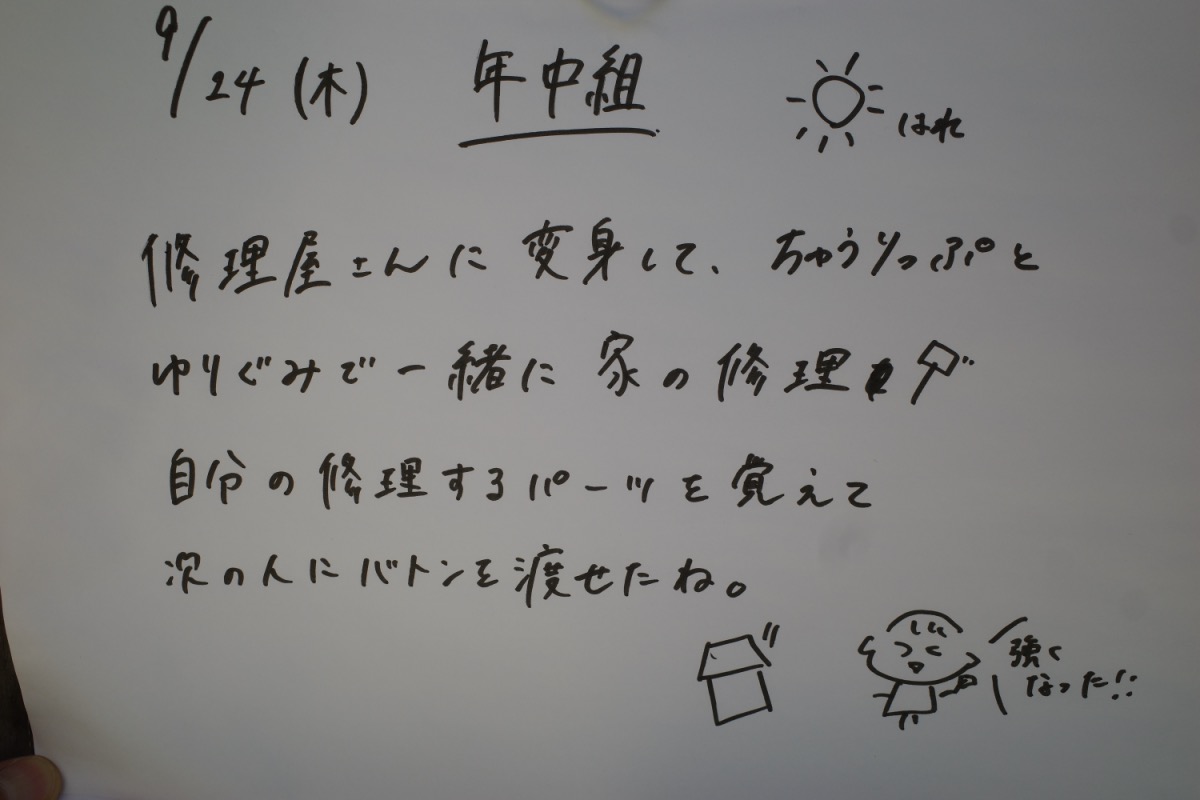 9/24(木) 年中組 はれ
修理屋さんに変身して、ちゅうりっぷと
ゆりぐみで一緒に家の修理
自分の修理するパーツを覚えて
次の人にバトンを渡せたね。
強く
なった!!